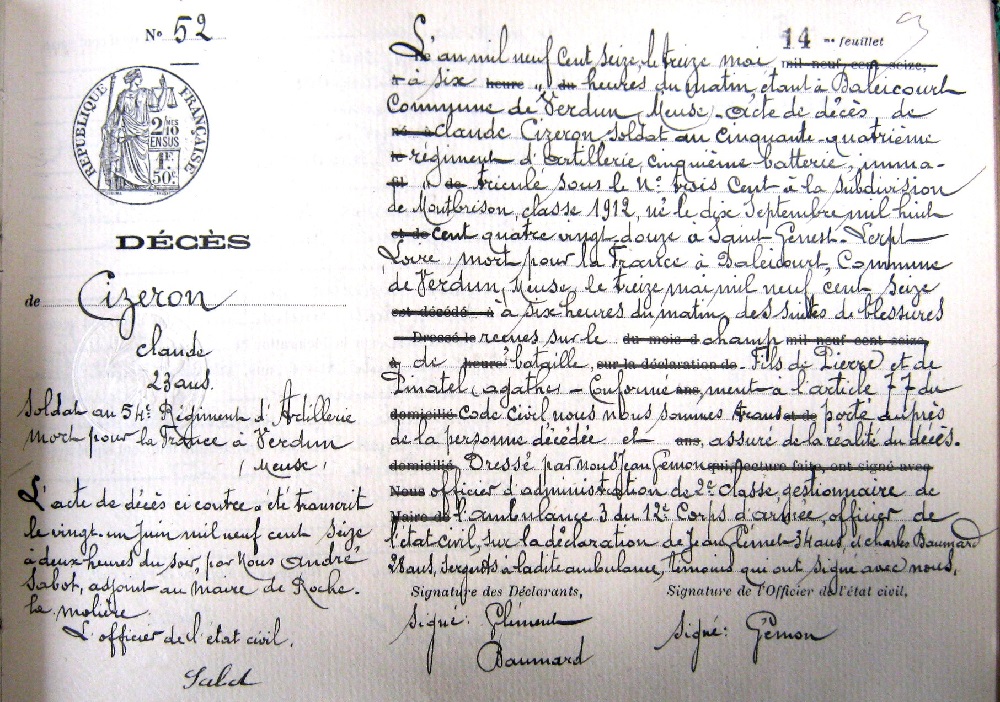 N° 52
RÉPUBLIQUE FRANÇAISE
2/10 MES
EN SUS
1 F.
50c
DÉCÈS
de Cizeron
Claude
23 ans.
Soldat au 54e Régiment d'Artillerie
mort pour la France à Verdun
(Meuse)
L'acte de décès ci contre a été transcrit
le vingt-un juin mil neuf cent seize
à deux heures du soir, par Nous André
Sabot, adjoint au maire de Roche-
la-molière.
L'officier de l'état civil.
Sabot
14 me feuillet
L'an mil neuf cent seize, le treize mai mil neuf cent seize,
à à six heure du heures du matin, étant à Baleicourt
Commune de Verdun (Meuse). Acte de décès de
né à Claude Cizeron, Soldat au Cinquante-quatrième
le régiment d'artillerie, cinquième batterie, imma-
fil de triculé sous le N° trois cent à la subdivision
de Montbrison, classe 1912, né le dix Septembre mil huit
et de cent quatre vingt douze à Saint Genest-Lerpt
Loire, mort pour la France à Baleicourt, Commune
de Verdun, Meuse, le treize mai mil neuf cent seize
est décédé à à six heures du matin, des suites de blessures
Dressé le reçues sur le du mois d champ mil neuf cent seize,
à de heure bataille, sur la déclaration de Fils de Pierre et de
Pinatel (agathe - Conformé ans, ment à l'article 77 du
domicilié Code Civil nous nous sommes trans et de porté auprès
de la personne décédée et ans, assuré de la réalité du décès.
domicilié Dressé par nous Jean Gémon qui, lecture faite, ont signé avec
Nous officier d'administration de 2e classe, gestionnaire de
Maire de l'ambulance 3 du 12e Corps d'armée, officier de
l'état civil, sur la déclaration de Jean Clément 34 ans, et Charles Baumard
28 ans, sergents à la dite ambulance, témoins qui ont signé avec nous.
Signature des Déclarants,
Signature de l'Officier de l'état civil,
Signé: Clément
Signé: Gémon
Baumard